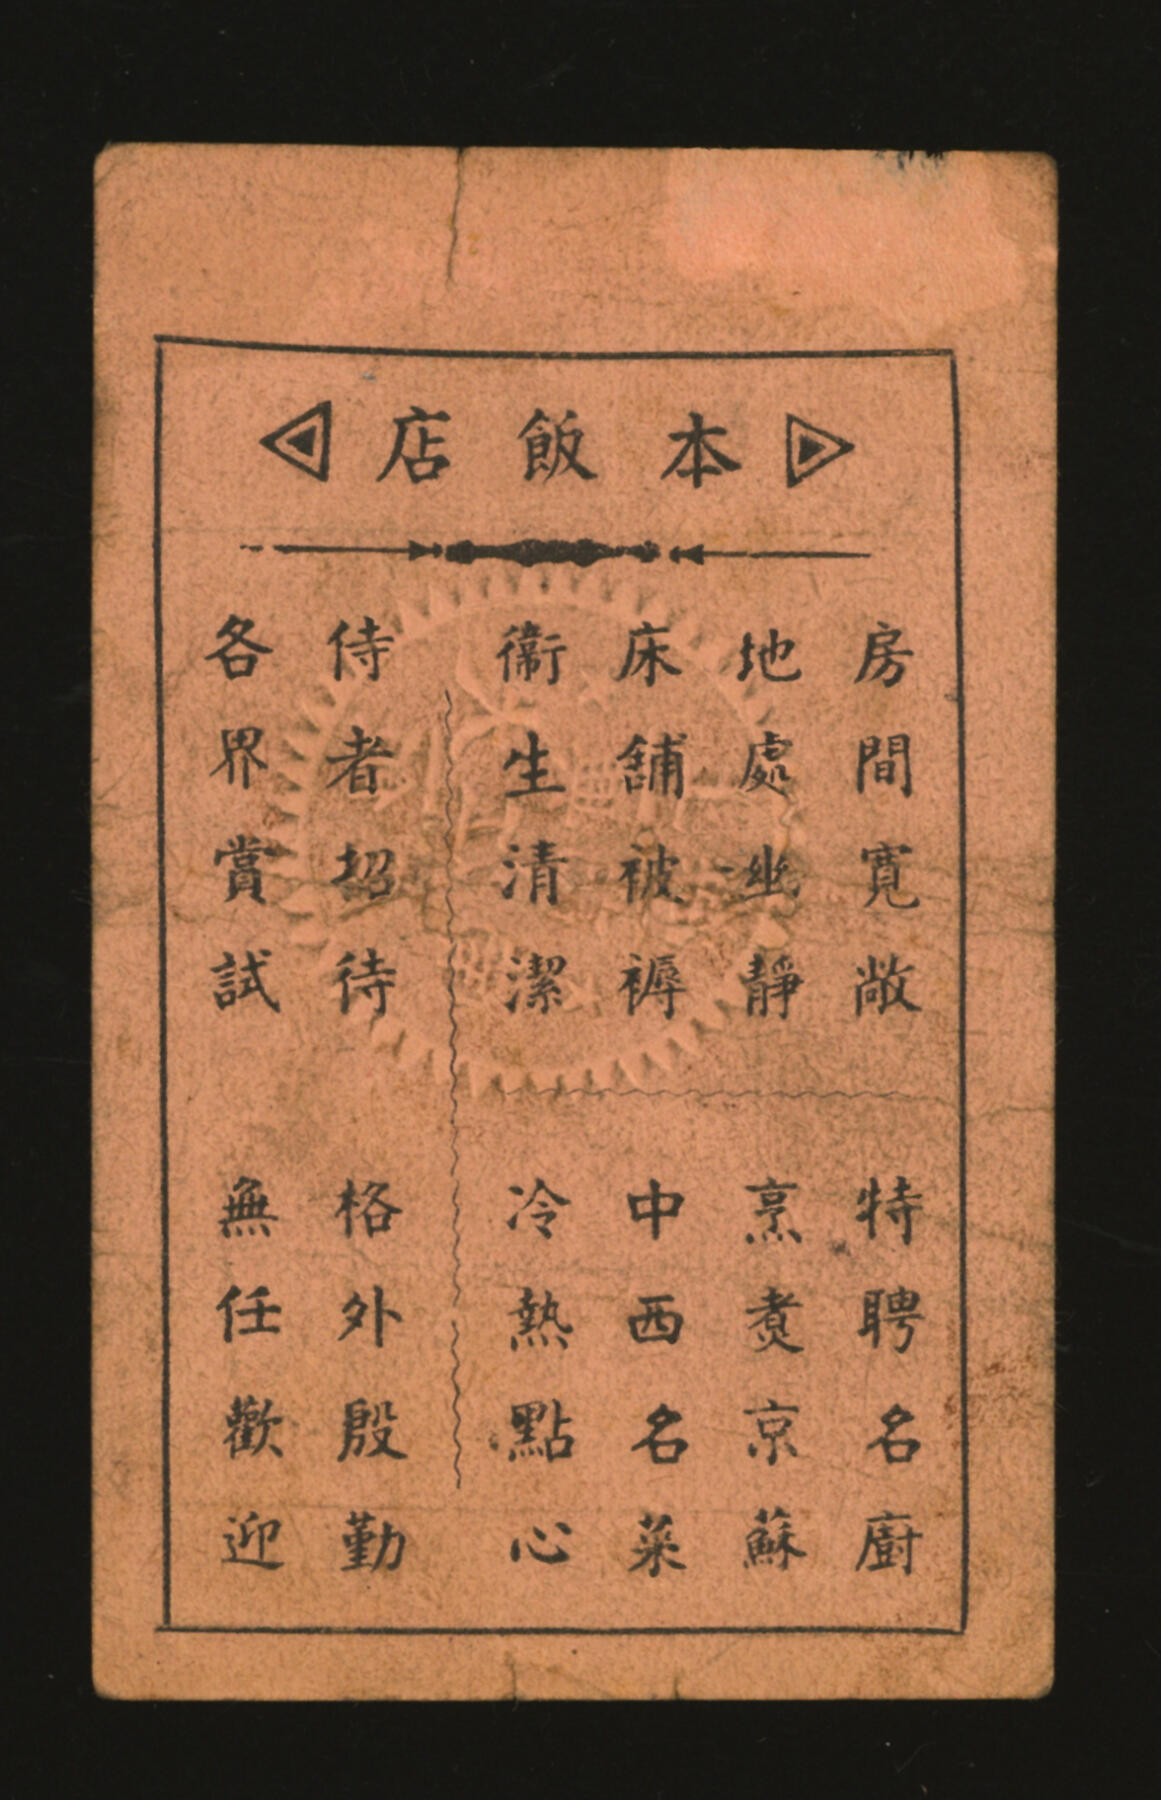 本飯店
房間寬敞
地處幽靜
床舖被褥
衛生清潔
特聘名廚
烹煑京蘇
中西名菜
冷熱點心
侍者招待 格外殷勤
各界賞試 無任歡迎